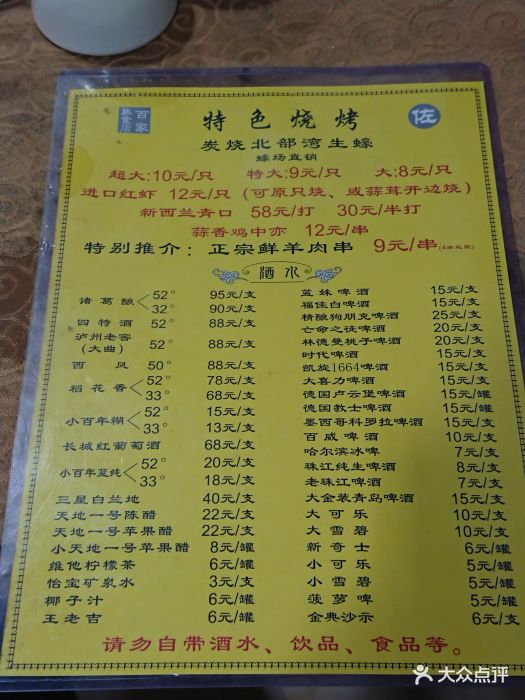 百家
熟食店
特色烧烤
佐
炭烧北部湾生蠔
蠔场直销
超大:10元/只 特大:9元/只 大:8元/只
进口红虾 12元/只 (可原只烧、或蒜茸开边烧)
新西兰青口 58元/打 30元/半打
蒜香鸡中亦 12元/串
特别推介: 正宗鲜羊肉串 9元/串(4串起烧)
酒水
诸葛酿 52° 95元/支
32° 90元/支
四特酒 52° 88元/支
泸州老窖(大曲) 52° 88元/支
西凤 50° 88元/支
稻花香 52° 78元/支
33° 68元/支
小百年糊 52° 15元/支
33° 13元/支
长城红葡萄酒 68元/支
小百年蓝纯 52° 20元/支
33° 18元/支
三星白兰地 40元/支
天地一号陈醋 22元/支
天地一号苹果醋 22元/支
小天地一号苹果醋 8元/罐
维他柠檬茶 6元/罐
怡宝矿泉水 3元/支
椰子汁 6元/罐
王老吉 6元/罐
蓝妹啤酒 15元/支
福佳白啤酒 15元/支
精酿狗朋克啤酒 25元/支
亡命之徒啤酒 20元/支
林德曼桃子啤酒 20元/支
时代啤酒 15元/支
凯旋1664啤酒 15元/支
大喜力啤酒 15元/支
德国卢云堡啤酒 15元/罐
德国教士啤酒 15元/罐
墨西哥科罗拉啤酒 15元/支
百威啤酒 10元/支
哈尔滨冰啤 7元/支
珠江纯生啤酒 8元/支
老珠江啤酒 7元/支
大金装青岛啤酒 15元/支
大可乐 10元/支
大雪碧 10元/支
新奇士 6元/罐
小可乐 5元/罐
小雪碧 5元/罐
菠萝啤 5元/罐
金典沙示 6元/支
请勿自带酒水、饮品、食品等。
大众点评